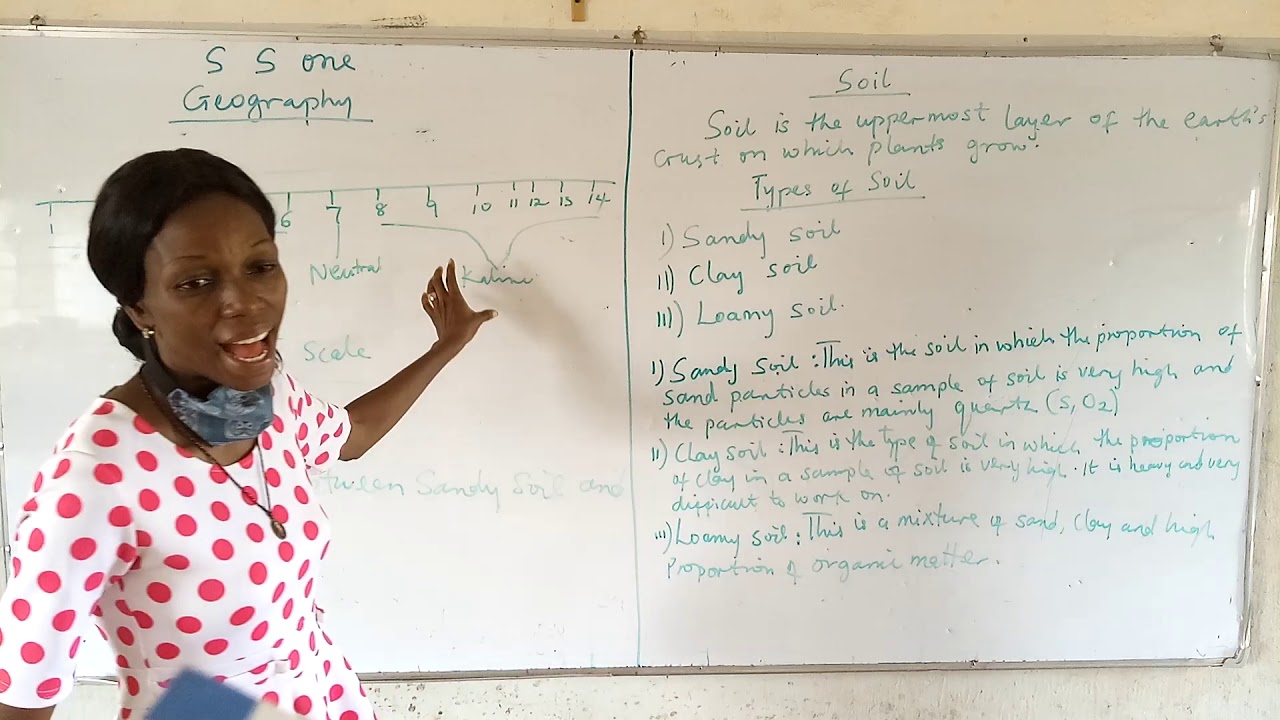 S S one
Geography
1 6 7 8 9 10 11 12 13 14
Neutral
Kaline
Scale
tween Sandy Soil and
Soil
Soil is the uppermost layer of the earth's
crust on which plants grow.
Types of Soil
I) Sandy soil
II) Clay soil
III) Loamy soil.
I) Sandy Soil : This is the soil in which the proportion of
sand particles in a sample of soil is very high and
the particles are mainly quartz (S, O2)
II) Clay soil : This is the type of soil in which the proportion
of clay in a sample of soil is very high. It is heavy and very
difficult to work on.
III) Loamy soil : This is a mixture of sand, clay and high
Proportion of organic matter.